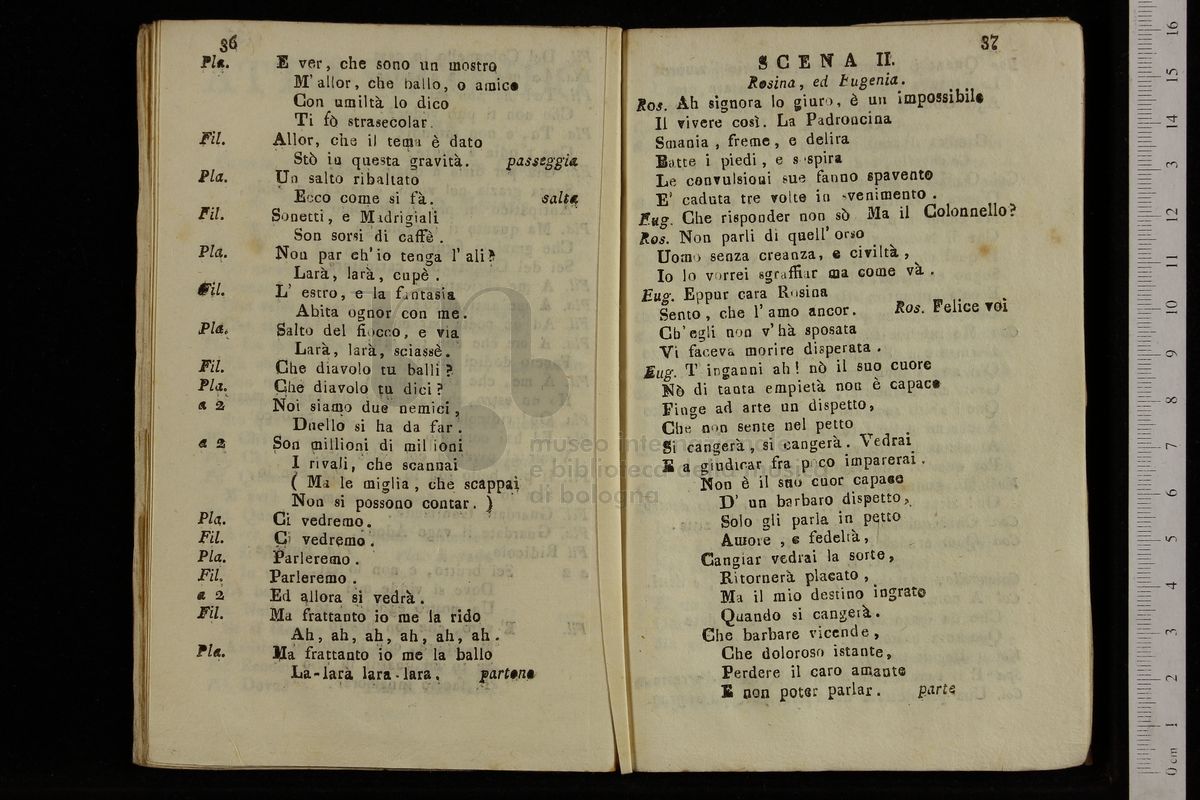 36
Pla. E ver, che sono un mostro
M' allor, che ballo, o amico
Con umiltà lo dico
Ti fò strasecolar.
Fil. Allor, che il tema è dato
Stò in questa gravità. passeggia
Pla. Un salto ribaltato
Ecco come si fà. salta
Fil. Sonetti, e Madrigiali
Son sorsi di caffè.
Pla. Non par ch' io tenga l' ali?
Larà, larà, cupè.
Fil. L' estro, e la fantasia
Abita ognor con me.
Pla. Salto del fiocco, e via
Larà, larà, sciassè.
Fil. Che diavolo tu balli?
Pla. Che diavolo tu dici?
a 2 Noi siamo due nemici,
Duello si ha da far.
a 2 Son millioni di millioni
I rivali, che scannai
( Ma le miglia, che scappai
Non si possono contar. )
Pla. Ci vedremo.
Fil. Ci vedremo.
Pla. Parleremo.
Fil. Parleremo.
a 2 Ed allora si vedrà.
Fil. Ma frattanto io me la rido
Ah, ah, ah, ah, ah, ah.
Pla. Ma frattanto io me la ballo
La-larà lara-lara. partono
37
SCENA II.
Rosina, ed Eugenia.
Ros. Ah signora lo giuro, è un impossibile
Il vivere così. La Padroncina
Smania, freme, e delira
Batte i piedi, e sospira
Le convulsioni sue fanno spavento
E' caduta tre volte in svenimento.
Eug. Che risponder non sò Ma il Colonnello?
Ros. Non parli di quell' orso
Uomo senza creanza, e civiltà,
Io lo vorrei sgraffiar ma come và.
Eug. Eppur cara Rosina
Sento, che l' amo ancor. Ros. Felice voi
Ch' egli non v' hà sposata
Vi faceva morire disperata.
Eug. T' inganni ah! nò il suo cuore
Nò di tanta empietà non è capace
Finge ad arte un dispetto,
Che non sente nel petto
Si cangerà, si cangerà. Vedrai
E a giudicar fra poco imparerai.
Non è il suo cuor capace
D' un barbaro dispetto,
Solo gli parla in petto
Amore, e fedeltà,
Cangiar vedrai la sorte,
Ritornerà placato,
Ma il mio destino ingrato
Quando si cangerà.
Che barbare vicende,
Che doloroso istante,
Perdere il caro amante
E non poter parlar. parte
museo internazionale
e biblioteca della musica
di bologna
0 cm 1 2 3 4 5 6 7 8 9 10 11 12 13 14 15 16